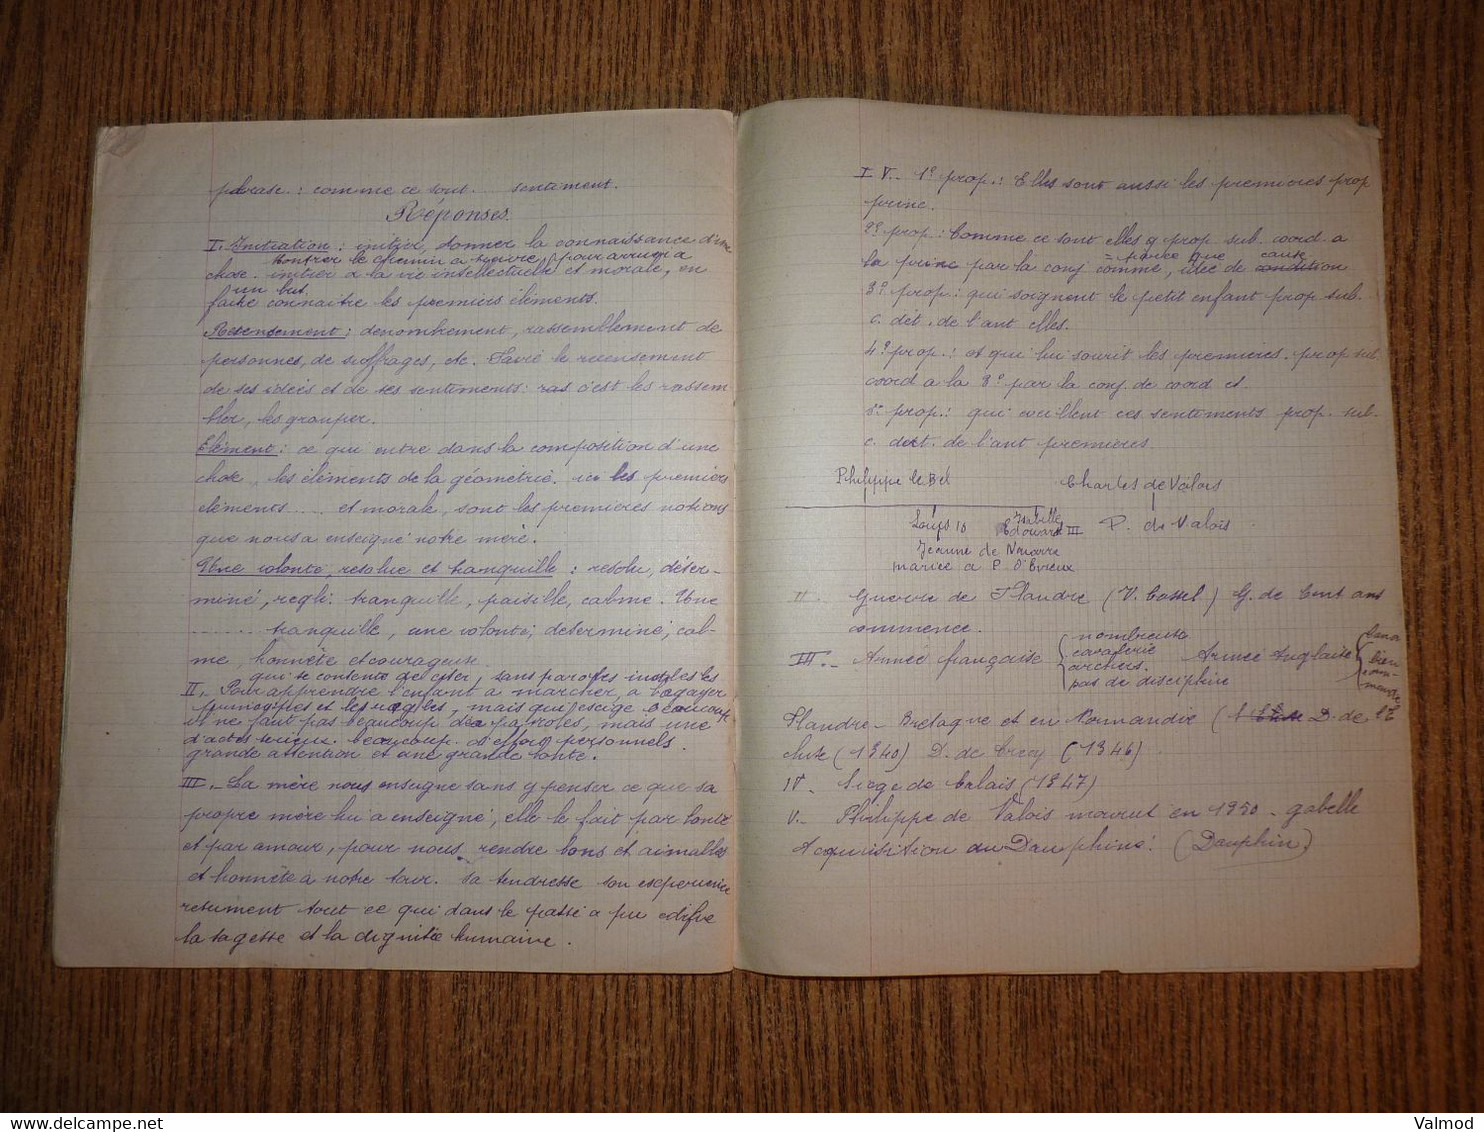 phrase : comme ce sont sentiment.
Réponses.
I. Initiation : initier, donner la connaissance d'une
montrer le chemin à suivre, pour arriver à
chose. initier à la vie intellectuelle et morale, en
un but
faire connaitre les premiers éléments.
Recensement : dénombrement, rassemblement de
personnes, de suffrages, etc. le recensement
de ses idées et de ses sentiments : c'est les rassem-
bler, les grouper.
Elément : ce qui entre dans la composition d'une
chose, les éléments de la géométrie. ici les premiers
éléments .... et morale, sont les premières notions
que nous a enseigné notre mère.
Une volonté, resolue et tranquille : resolu, déter-
miné, tranquille, paisible, calme. Une
........ tranquille, une volonté, determiné, cal-
me, honnête et courageuse.
qui se contente de citer, sans paroles inutiles les
II. Pour apprendre l'enfant à marcher, à bégayer
principes et les règles, mais qui exige beaucoup
il ne faut pas beaucoup de paroles, mais une
d'actes sérieux. beaucoup d'efforts personnels.
grande attention et une grande bonté.
III. La mère nous enseigne sans y penser ce que sa
propre mère lui a enseigné, elle le fait par bonté
et par amour, pour nous rendre bons et aimables
et honnête à notre tour. sa tendresse son expérience
resument tout ce qui dans le passé a pu edifié
la sagesse et la dignitée humaine.
IV. 1° prop. : Elles sont aussi les premieres prop
princ.
2° prop : Comme ce sont elles q prop sub. coord a
= parce que cause
la princ par la conj comme, idée de condition
3° prop : qui soignent le petit enfant prop sub.
c. dét. de l'ant elles.
4° prop. : et qui lui sourit les premieres. prop sub
coord a la 3° par la conj. de coord et.
5° prop. : qui cueillent ces sentiments prop. sub-
c. det. de l'ant premieres.
Philippe le Bel Charles de Valois
Louis 10 Isabelle P. de Valois
Edouard III
Jeanne de Navarre
mariée a P. d'Evreux
II. Guerre de Flandre (V. Cassel) G. de Cent ans
commence.
III. Armée française nombreuse Armée Anglaise
cavalerie bien
archers.
pas de discipline
Flandre - Bretagne et en Normandie ( D. de l'E
cluse (1340) D. de Crecy (1346)
IV. Siege de Calais (1347)
V. Philippe de Valois mourut en 1350 - gabelle
Acquisition du Dauphiné. (Dauphin)
Delcampe.net
Valmod